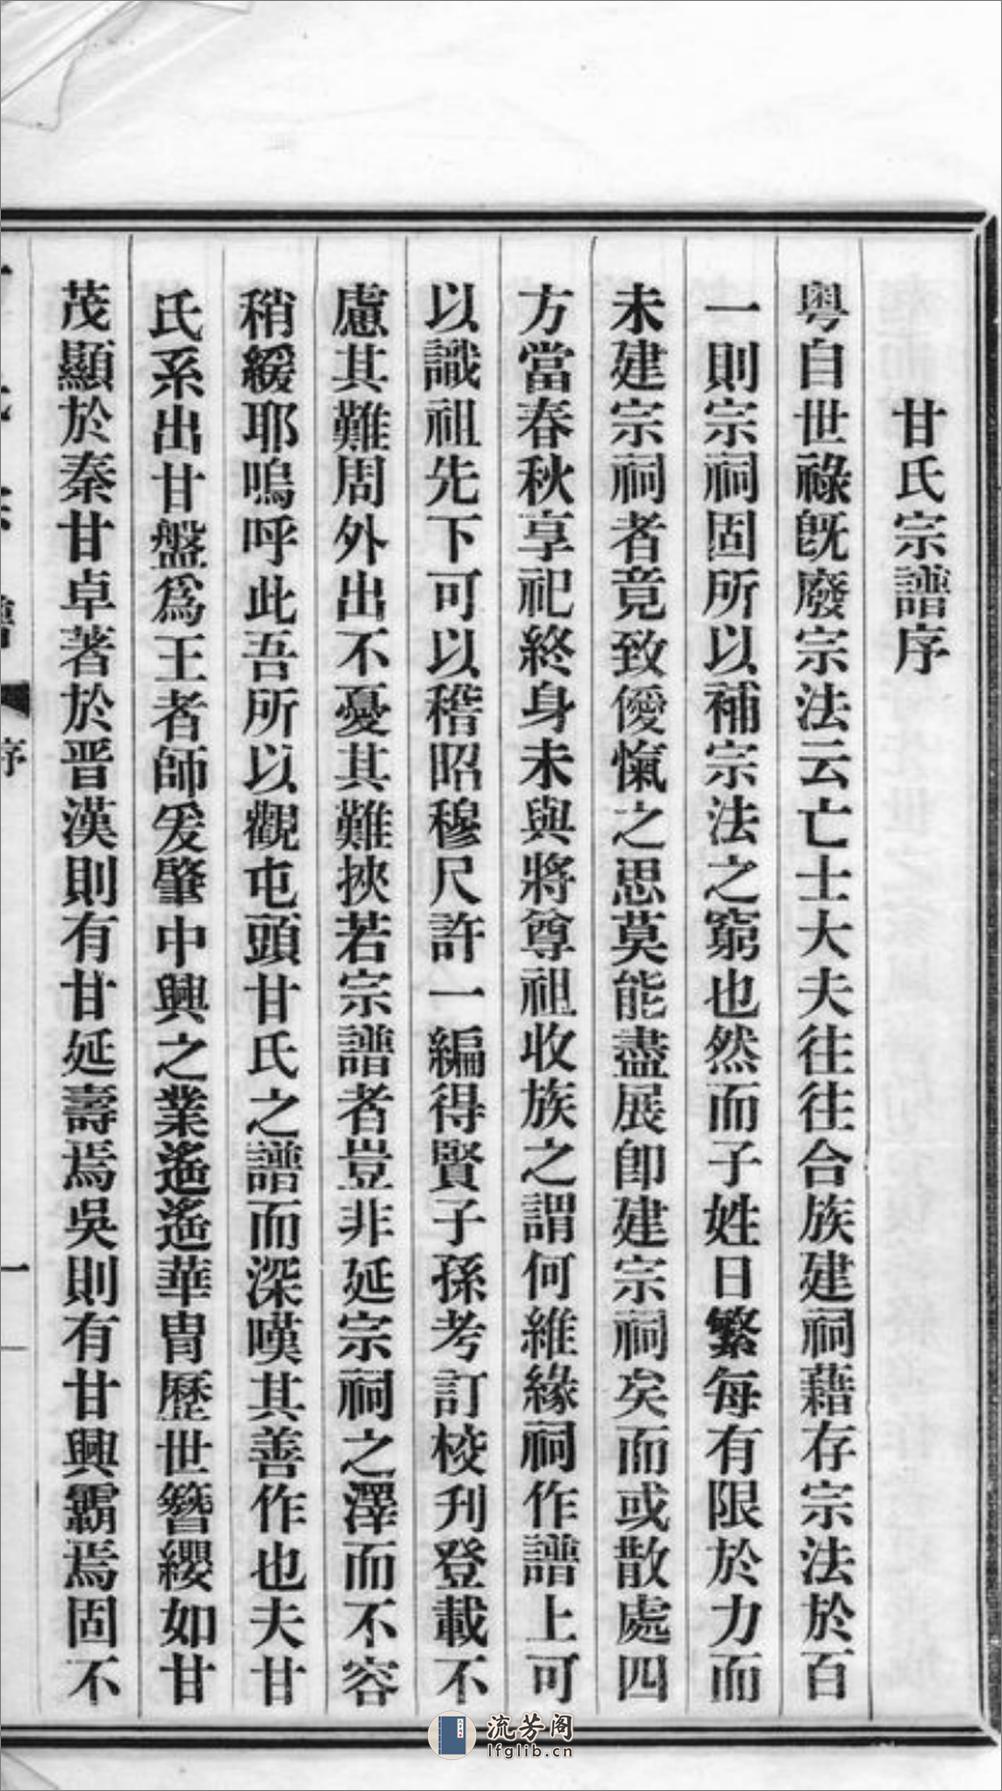 甘氏宗譜序
粵自世祿旣廢宗法云亡士大夫往往合族建祠藉存宗法於百
一則宗祠固所以補宗法之窮也然而子姓日繁每有限於力而
未建宗祠者竟致僾愾之思莫能盡展卽建宗祠矣而或散處四
方當春秋享祀終身未與將尊祖收族之謂何維緣祠作譜上可
以識祖先下可以稽昭穆尺許一編得賢子孫考訂校刋登載不
慮其難周外出不憂其難挾若宗譜者豈非延宗祠之澤而不容
稍緩耶嗚呼此吾所以觀屯頭甘氏之譜而深嘆其善作也夫甘
氏系出甘盤爲王者師爰肇中興之業遙遙華胄歷世簪纓如甘
茂顯於秦甘卓著於晋漢則有甘延壽焉吳則有甘興霸焉固不
譜
序
一
流芳阁
lfglib.cn